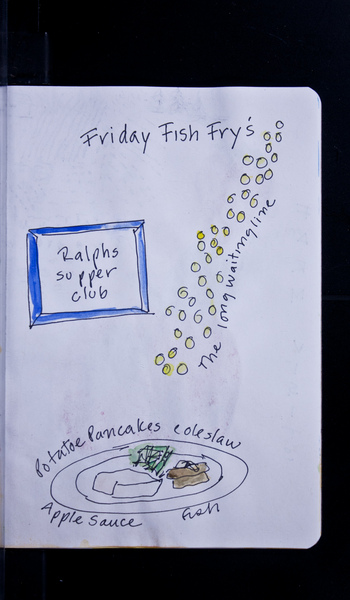 Friday Fish Fry's
Ralphs
supper
club
The long waiting line
Potatoe Pancakes coleslaw
Apple Sauce
Fish